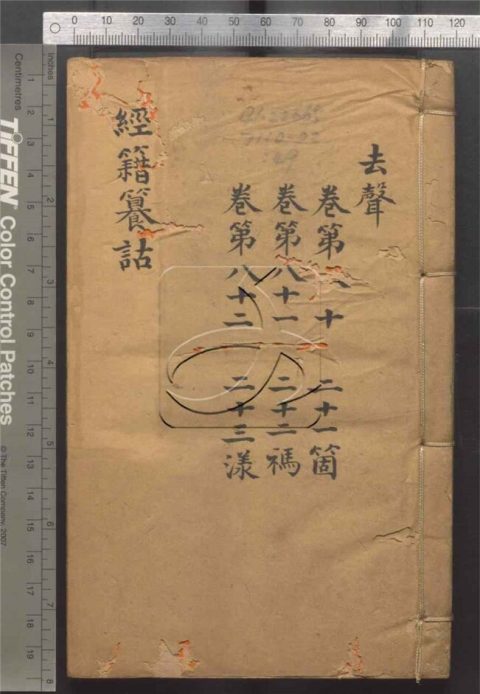 去聲
卷第八十 二十一箇
卷第八十一 二十二禡
卷第八十二 二十三漾
經籍籑詁
0 10 20 30 40 50 60 70 80 90 100 110 120
Centimetres
Inches
TIFFEN Color Control Patches
© The Tiffen Company, 2007
1 2 3 4 5 6 7 8 9 10 11 12 13 14 15 16 17 18 19
1 2 3 4 5 6 7 8